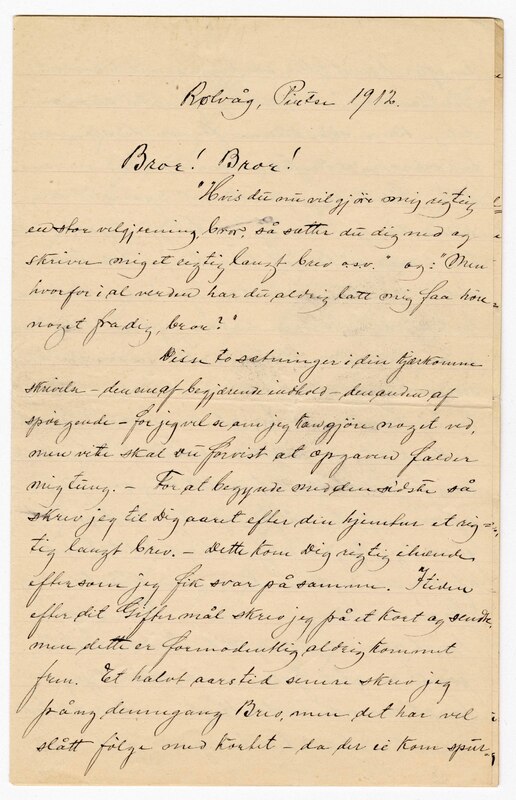 Rølvåg, Pintse 1912.
Broe! Broe!
"Hvis du nu vil gjöre mig rigtig
en stor velgjerning, bror, så sætter du dig ned og
skriver mig et rigtig langt brev o.s.v." og: "Men
hvorfor i al verden har du aldrig latt mig faa höre
noget fra dig, bror?"
Disse to sætninger i din kjærkomne
skrivelse – den ene af begjærende indhold – den anden af
spörgende – for jeg vel se om jeg kan gjöre noget ved,
men vite skal Du forvist at opgaven falder
mig tung. – For at begynde med den sidste så
skrev jeg til Dig aaret efter din hjemtur et rig-
tig langt brev. – Dette kom Dig rigtig ihænde
eftersom jeg fik svar på samme. I tiden
efter dit Giftermål skrev jeg på et kort og sendte,
men dette er formodentlig aldrig kommet
frem. Et halvt aars tid senere skrev jeg
på ny denne gang Brev, men det har vel
slått fölge med kortet – da der ei kom spör-